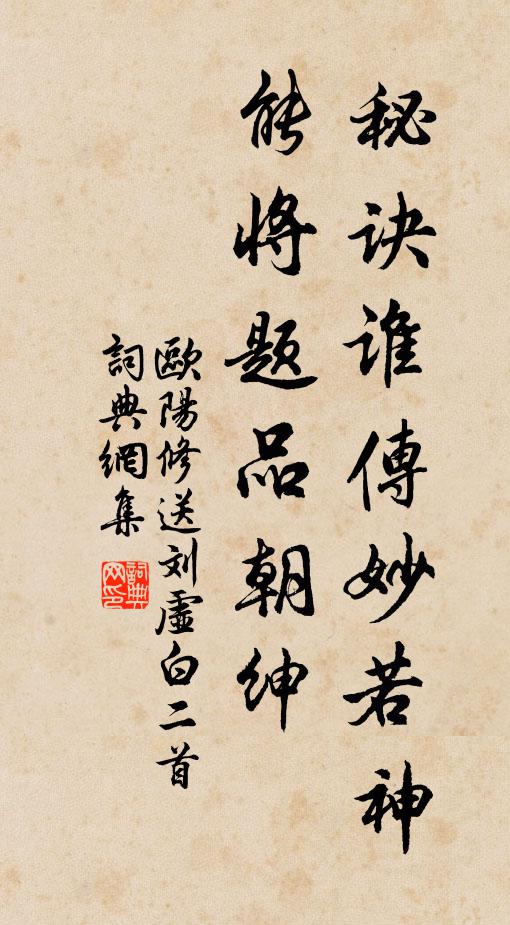 秘诀誰傳妙若神
能将题品朝紳
歐陽修送刘虛白二首
詞典網集
詞典网印